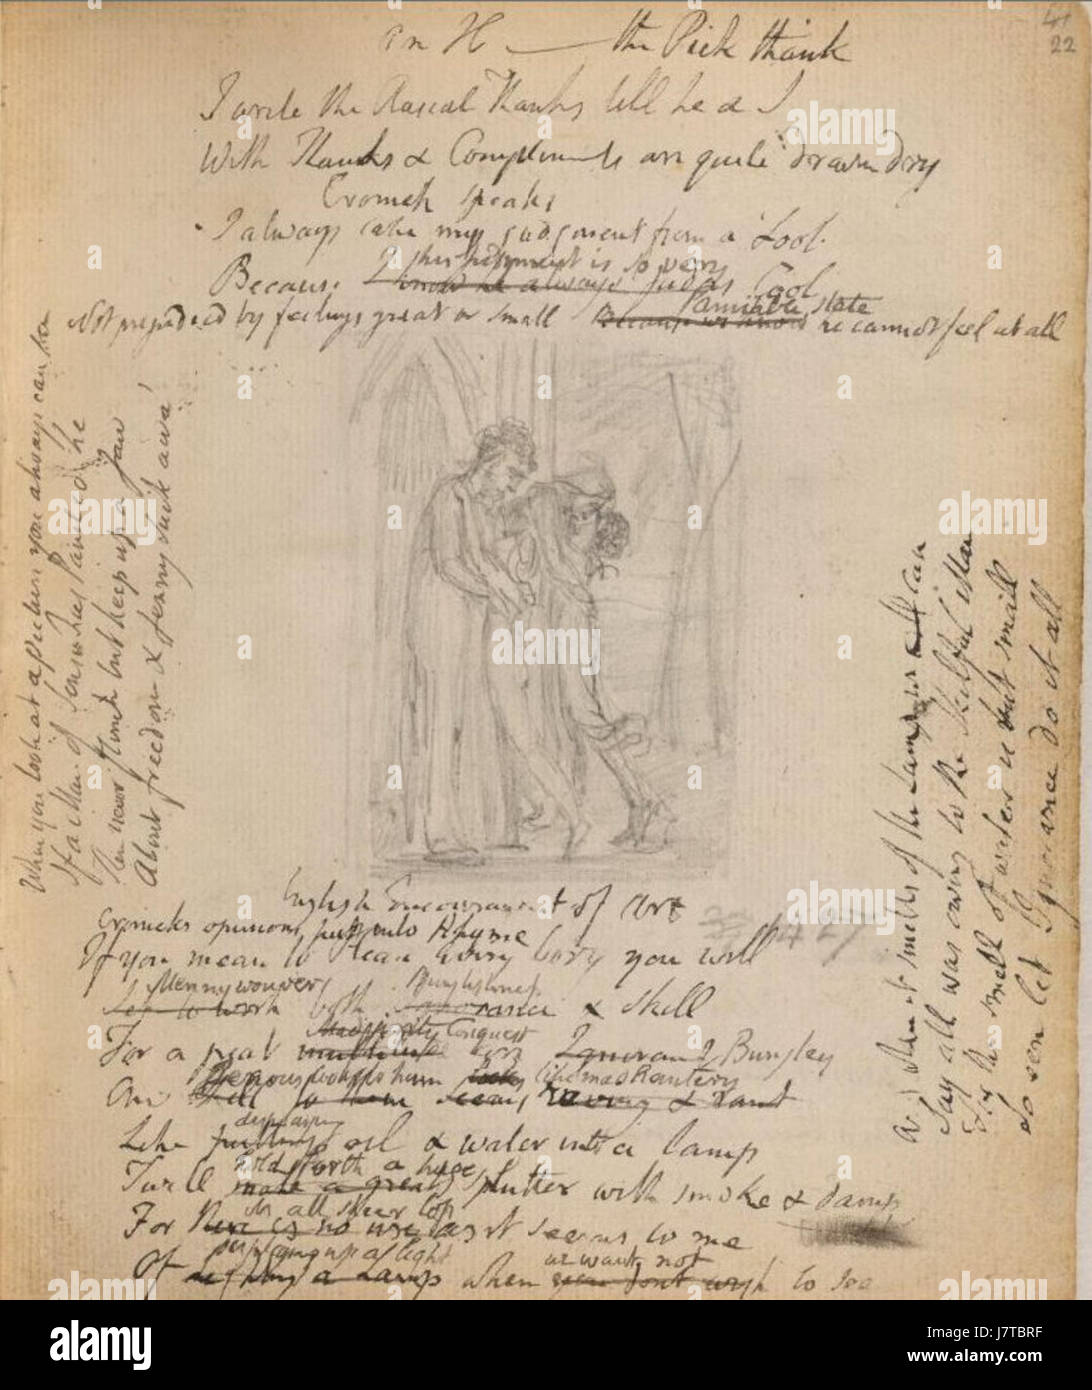 41
22
on H — the Pick thank
I write the Rascal Thanks till he & I
With Thanks & Compliments are quite drawn dry
Cromek speaks
I always take my judgment from a Fool
this judgment is so very
Because I know he always judges Cool
amiable state
Not prejudiced by feelings great or small because we know he cannot feel at all
When you look at a picture you always can see
If a Man of Sense has Painted he
Then never flinch but keep up a Jaw
About freedom & Jenny suck awa'
English Encouragement of Art
Cromeks opinions put into Rhyme
If you mean to Please Every body you will
Mennywouver Bunglishness
Set to work both Ignorance & skill
Madjority Conquest
For a great multitude are Ignorant Bungley
Genous looks to ham like mad Rantery
And skill to them seems raving & rant
displaying
Like putting oil & water into a lamp
hold forth a huge
Twill make a great splutter with smoke & damp
its all sheer loss
For there is no use as it seems to me
displaying up a light
Of lighting a Lamp when you dont wish to see
we want not
And when it smells of the Lamp we can
Say all was owing to the Skilful Man
For the smell of water is but small
So een let Ignorance do it all
27
alamy
Image ID: J7TBRF
www.alamy.com